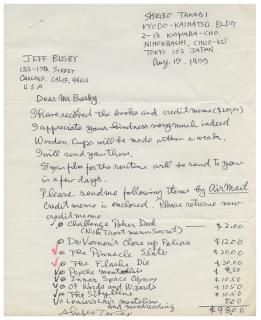 SHIGEO TAKAGI
KYODO-KAIHATSU BLDG
2-13 KAYABA-CHO
NIHONBASHI, CHUO-KU
TOKYO 103 JAPAN
Aug. 17, 1979
JEFF BUSBY
133-17th STREET
OAKLAND, CALIF. 94612
U.S.A
Dear Mr. Busby
I have received the books and credit memo
I appreciate your kindness very much indeed
Wooden Cups will be made within a week.
I will send you them.
8mm film for the routine will be send to you
in a few days.
Please send me following items by Air Mail
Credit memo is enclosed. Please return new
credit memo
Challenge Poker Deal $2.00
(Nick Trost manuscript)
Don Vernon's Close up Folios $12.00
The Pinnacle Slate $20.00
The Flashi Die $20.00
Psycho mentalism 8.50
Inner Space Odyssey $10.50
Of Words and Wizards $10.50
The Sibyl
Lewis's Lair mentalism 5.00
and mindreading $98.00
Shigeo Takagi